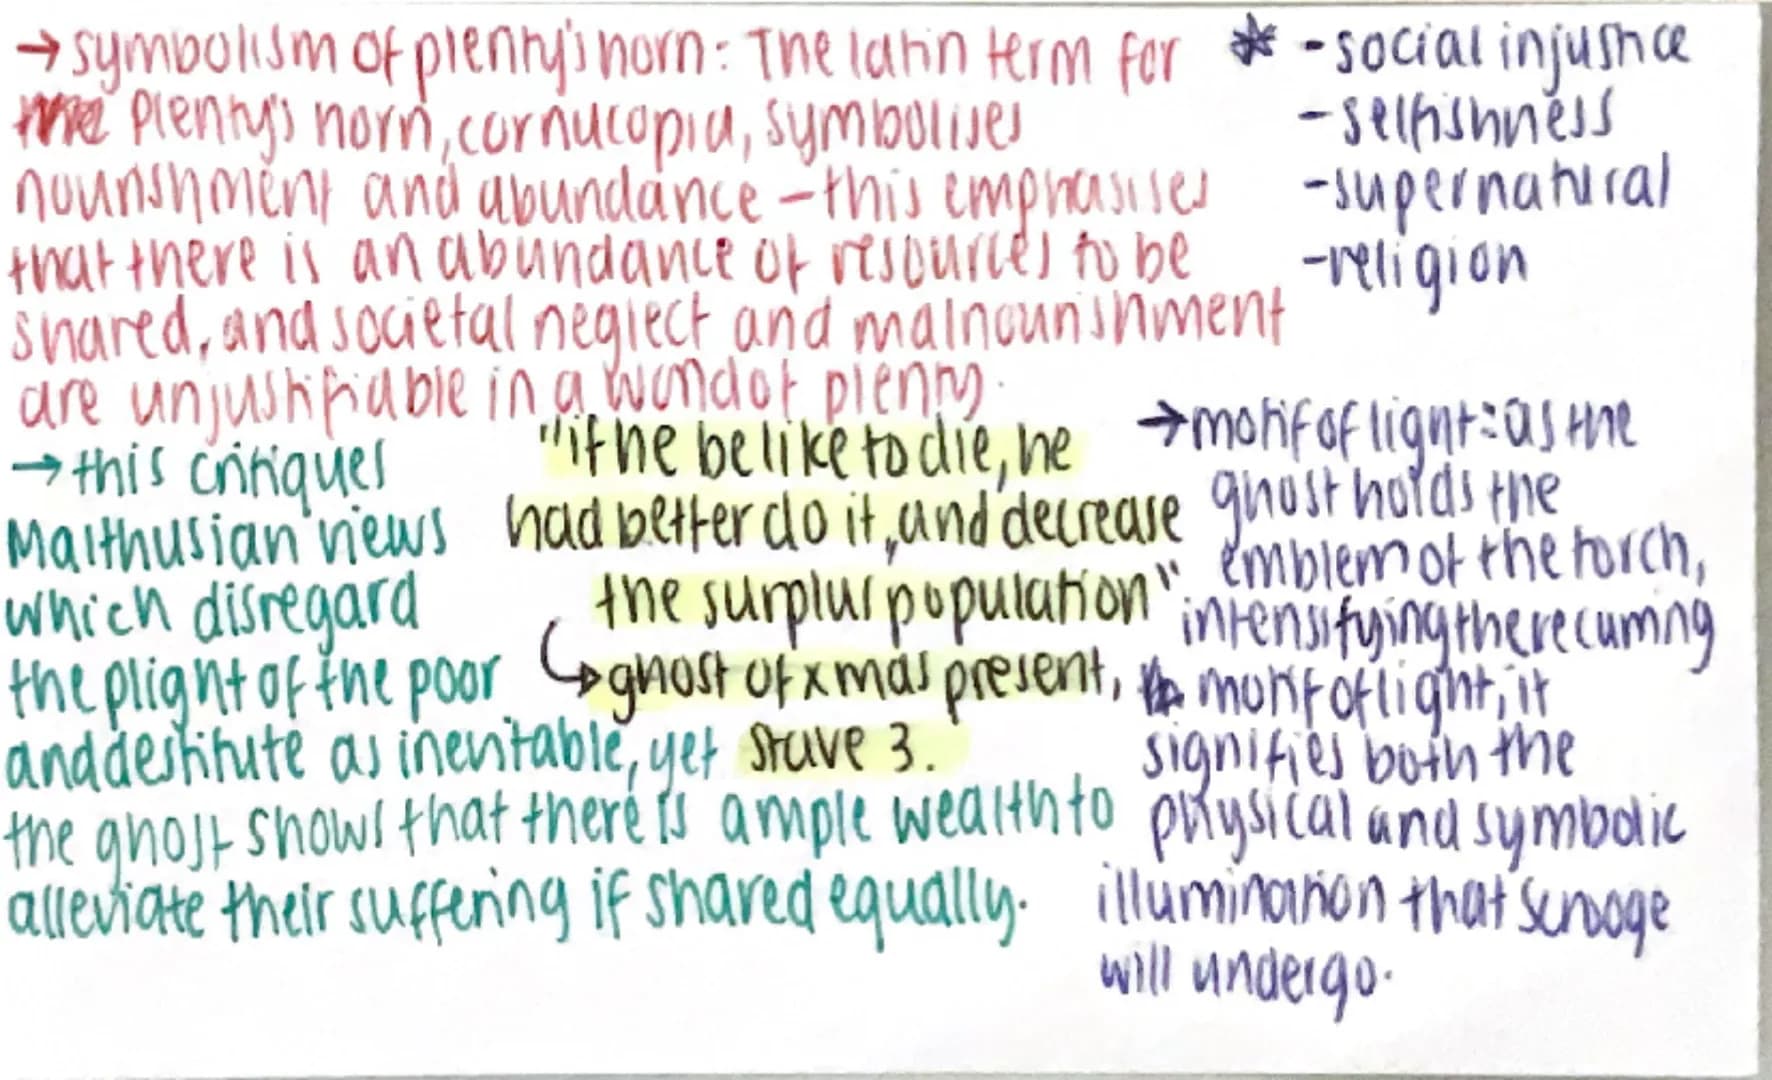 → symbolism of plenty's horn: The latin term for
plenty's horn, cornucopia, symbolises
nourishment and abundance – this emphasises
that there is an abundance of resources to be
shared, and societal neglect and malnourishment
are unjustifiable in a world of plenty.
* - social injustice
- selfishness
- supernatural
- religion
"if he be like to die, he
had better do it, and decrease
the surplus population"
↳ ghost of xmas present,
stave 3.
→ this critiques
Malthusian views
which disregard
the plight of the poor
and destitute as inevitable, yet
the ghost shows that there is ample wealth to
alleviate their suffering if shared equally.
→ motif of light: as the
ghost holds the
emblem of the torch,
intensifying the recurring
motif of light, it
signifies both the
physical and symbolic
illumination that Scrooge
will undergo.